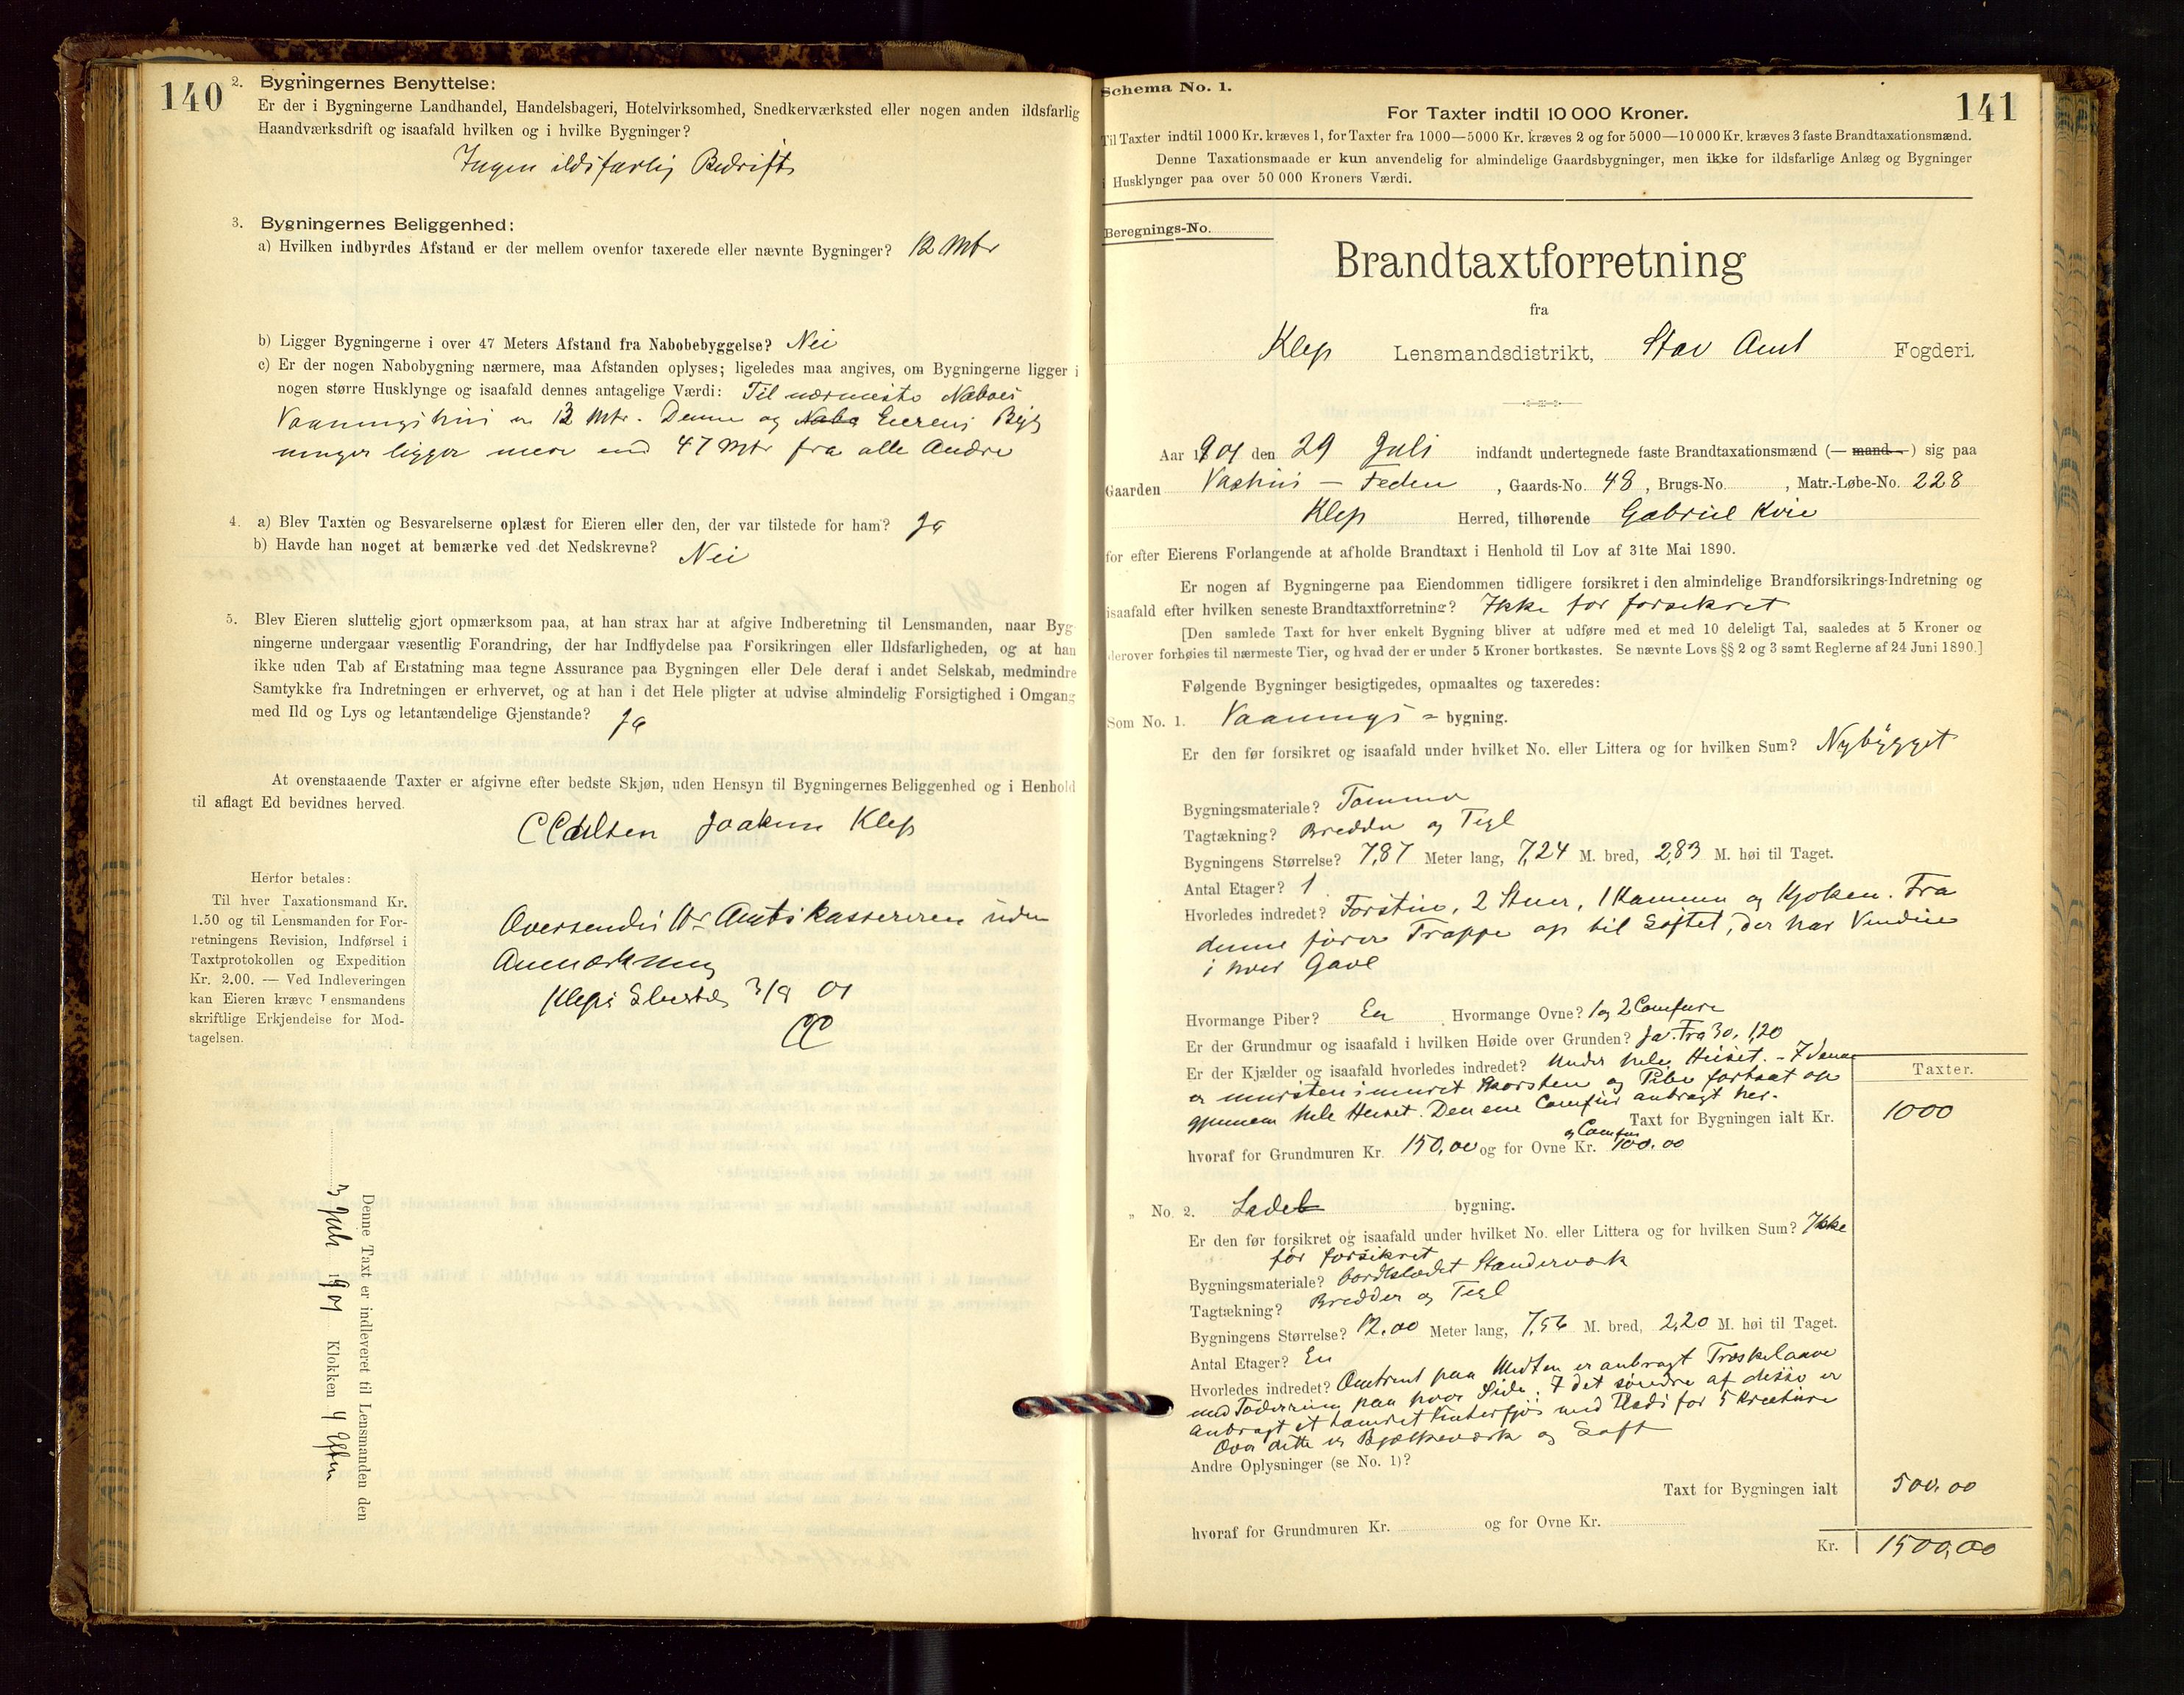 140
2. Bygningernes Benyttelse:
Er der i Bygningerne Landhandel, Handelsbageri, Hotelvirksomhed, Snedkerværksted eller nogen anden ildsfarlig
Haandværksdrift og isaafald hvilken og i hvilke Bygninger?
Ingen ildsfarlig Bedrift
3. Bygningernes Beliggenhed:
a) Hvilken indbyrdes Afstand er der mellem ovenfor taxerede eller nævnte Bygninger? 12 Mtr
b) Ligger Bygningerne i over 47 Meters Afstand fra Nabobebyggelse? Nei
c) Er der nogen Nabobygning nærmere, maa Afstanden oplyses; ligeledes maa angives, om Bygningerne ligger i
nogen større Husklynge og isaafald dennes antagelige Værdi: Til nærmeste Naboes
Vaaningshus er 12 Mtr. Denne og Nabo Eierens Byg
ninger ligger mere end 47 Mtr fra alle Andre
4. a) Blev Taxten og Besvarelserne oplæst for Eieren eller den, der var tilstede for ham? Ja
b) Havde han noget at bemærke ved det Nedskrevne? Nei
5. Blev Eieren sluttelig gjort opmærksom paa, at han strax har at afgive Indberetning til Lensmanden, naar Byg
ningerne undergaar væsentlig Forandring, der har Indflydelse paa Forsikringen eller Ildsfarligheden, og at han
ikke uden Tab af Erstatning maa tegne Assurance paa Bygningen eller Dele deraf i andet Selskab, medmindre
Samtykke fra Indretningen er erhvervet, og at han i det Hele pligter at udvise almindelig Forsigtighed i Omgang
med Ild og Lys og letantændelige Gjenstande? Ja
At ovenstaaende Taxter er afgivne efter bedste Skjøn, uden Hensyn til Bygningernes Beliggenhed og i Henhold
til aflagt Ed bevidnes herved.
C Carlsen Joakim Klep
Herfor betales:
Til hver Taxationsmand Kr.
1.50 og til Lensmanden for For-
retningens Revision, Indførsel i
Taxtprotokollen og Expedition
Kr. 2.00. — Ved Indleveringen
kan Eieren kræve Lensmandens
skriftlige Erkjendelse for Mod-
tagelsen.
Oversendes Hr Amtskassereren uden
Anmærkning
Klep 3/8 01
CC
Denne Taxt er indleveret til Lensmanden den
3 Juli 1901 Klokken 4 Eftm
Schema No. 1.
141
For Taxter indtil 10 000 Kroner.
Til Taxter indtil 1000 Kr. kræves 1, for Taxter fra 1000—5000 Kr. kræves 2 og for 5000—10 000 Kr. kræves 3 faste Brandtaxationsmænd.
Denne Taxationsmaade er kun anvendelig for almindelige Gaardsbygninger, men ikke for ildsfarlige Anlæg og Bygninger
i Husklynger paa over 50 000 Kroners Værdi.
Beregnings-No.
Brandtaxtforretning
fra
Klep Lensmandsdistrikt, Stav Amt Fogderi.
Aar 1901 den 29 Juli indfandt undertegnede faste Brandtaxationsmænd (— mand —) sig paa
Gaarden Vashus – Feden, Gaards-No. 48, Brugs-No. , Matr.-Løbe-No. 228
Klep Herred, tilhørende Gabriel Kvie
for efter Eierens Forlangende at afholde Brandtaxt i Henhold til Lov af 31te Mai 1890.
Er nogen af Bygningerne paa Eiendommen tidligere forsikret i den almindelige Brandforsikrings-Indretning og
isaafald efter hvilken seneste Brandtaxtforretning? Ikke før forsekret
[Den samlede Taxt for hver enkelt Bygning bliver at udføre med et med 10 deleligt Tal, saaledes at 5 Kroner og
derover forhøies til nærmeste Tier, og hvad der er under 5 Kroner bortkastes. Se nævnte Lovs §§ 2 og 3 samt Reglerne af 24 Juni 1890.]
Følgende Bygninger besigtigedes, opmaaltes og taxeredes:
Som No. 1. Vaanings = bygning.
Er den før forsikret og isaafald under hvilket No. eller Littera og for hvilken Sum? Nybygget
Bygningsmateriale? Tømmer
Tagtækning? Bredder og Tegl
Bygningens Størrelse? 7,87 Meter lang, 7,24 M. bred, 2,83 M. høi til Taget.
Antal Etager? 1
Hvorledes indredet? Forstue, 2 Stuer, 1 Kammer og Kjøken. Fra
denne fører Trappe op til Loftet, der har Vindue
i hver Gavl
Hvormange Piber? En Hvormange Ovne? 1 og 2 Comfure
Er der Grundmur og isaafald i hvilken Høide over Grunden? Ja. Fra 30, 1,20
Er der Kjælder og isaafald hvorledes indredet? Under hele Huset. – I denne
er mursten imuret Skorsten og Pibe fortsat op
gjennem hele Huset. Den ene Comfur anbragt her.
Taxter.
Taxt for Bygningen ialt Kr. 1000
hvoraf for Grundmuren Kr. 150,00 og for Ovne og Comfur Kr. 100,00
„ No. 2. Lade bygning.
Er den før forsikret og isaafald under hvilket No. eller Littera og for hvilken Sum? Ikke
før forsikret
Bygningsmateriale? bordklædt Standerværk
Tagtækning? Bredder og Tegl
Bygningens Størrelse? 12,00 Meter lang, 7,56 M. bred, 2,20 M. høi til Taget.
Antal Etager? En
Hvorledes indredet? Omtrent paa Midten er anbragt Træskelaave
med Foderrum paa hver Side. I det søndre af disse er
anbragt et tømret Vinterfjøs med Plads for 5 Kreature
Over dette er Bjælkeværk og Loft
Andre Oplysninger (se No. 1)?
Taxt for Bygningen ialt 500,00
hvoraf for Grundmuren Kr. og for Ovne Kr.
Kr. 1500,00